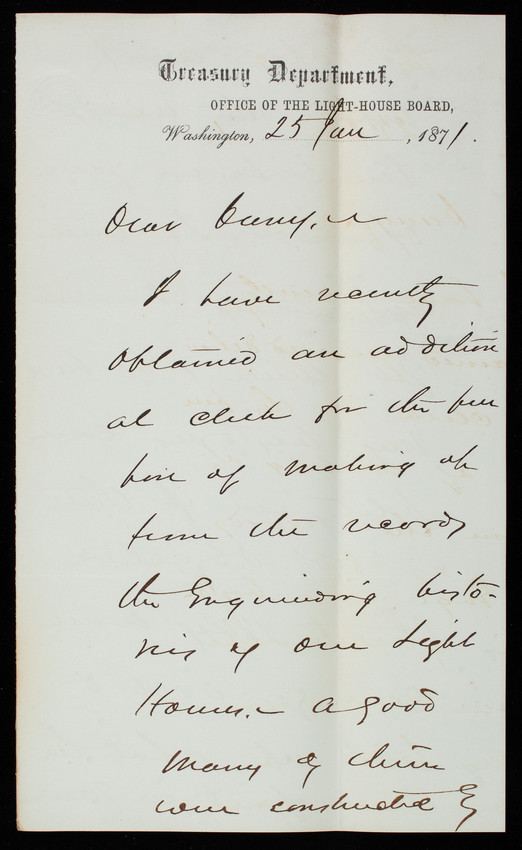 Treasury Department,
OFFICE OF THE LIGHT-HOUSE BOARD,
Washington, 25 Jan, 1871.
Dear Casey,
I have recently
obtained an addition
al clerk for the pur
pose of making up
from the records
the Engineering histo-
ries of our Light
Houses. A good
many of them
were constructed by